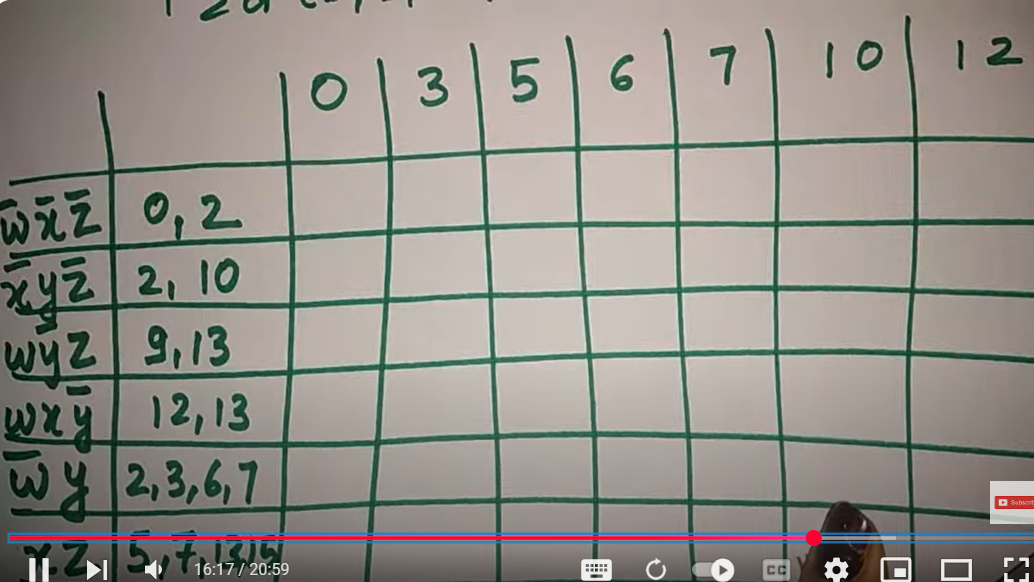 0 3 5 6 7 10 12
w̅ x̅ z̅ 0, 2
x̅ y z̅ 2, 10
w y̅ z 9, 13
w x y̅ 12, 13
w̅ y 2, 3, 6, 7
x z 5, 7, 13, 15
Subscri
16:17 / 20:59
CC